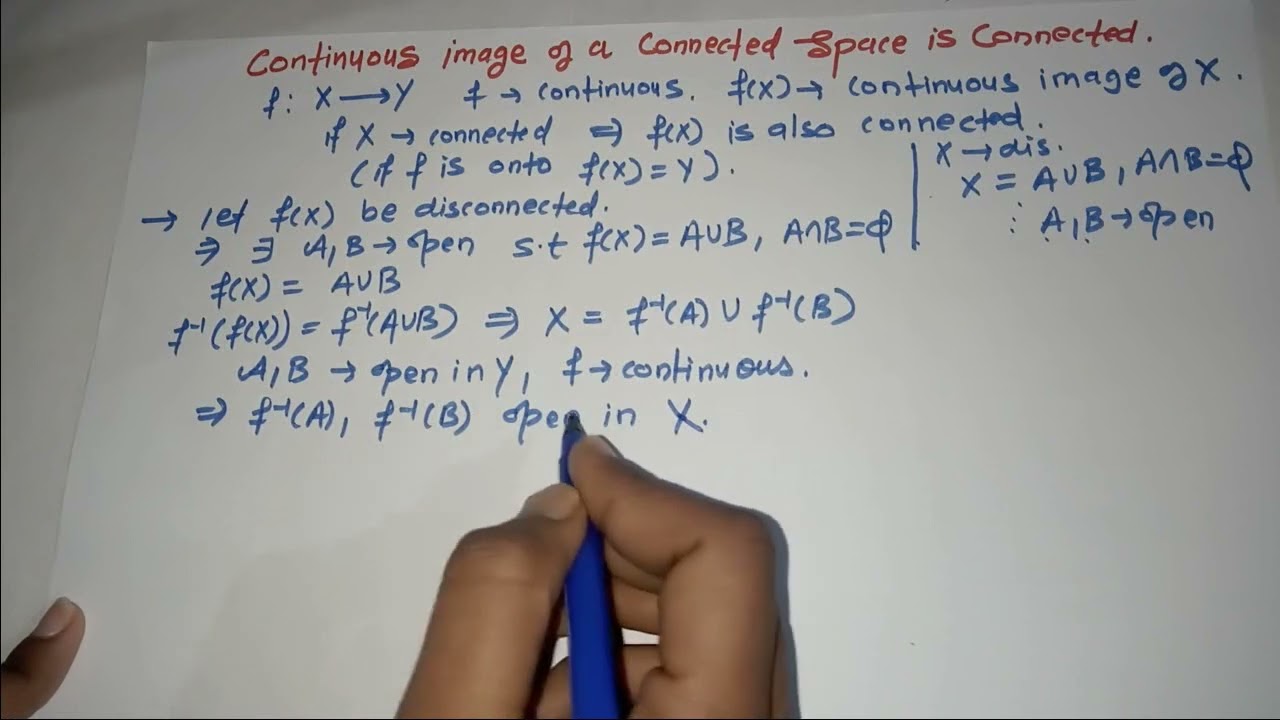 Continuous image of a Connected Space is Connected.
f: X → Y f → continuous. f(X) → continuous image of X.
if X → connected ⇒ f(X) is also connected.
(if f is onto f(X) = Y).
X → dis.
X = A∪B, A∩B = Φ
: A, B → open
→ let f(X) be disconnected.
⇒ ∃ A, B → open s.t f(X) = A∪B, A∩B = Φ
f(X) = A∪B
f⁻¹(f(X)) = f⁻¹(A∪B) ⇒ X = f⁻¹(A) ∪ f⁻¹(B)
A, B → open in Y, f → continuous.
⇒ f⁻¹(A), f⁻¹(B) open in X.